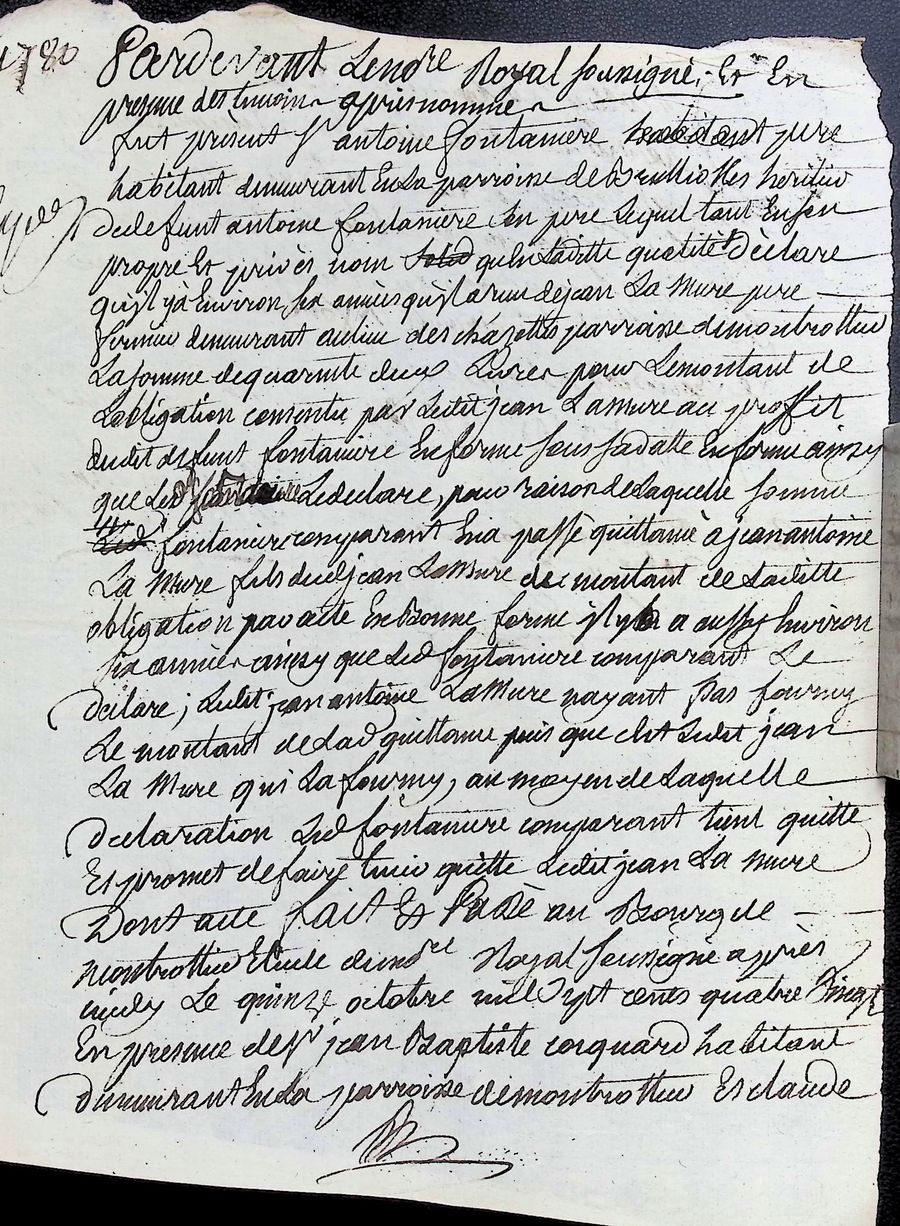 1780
Pardevant Le no.re Royal soussigné, Et En
presence des temoins apres nommes
fut présent Sr antoine fontaniere habitant pere
habitant demeurant En La parroisse de Brullioles heritier
de defunt antoine fontanière son pere Lequel tant En son
propre Et privés nom qu'en Laditte qualité Déclare
qu'il y à Environ six années qu'il a reçu de jean La Mure pere
fermier demeurant au lieu des chazettes parroisse de montrottier
La somme de quarente deux Livres pour Le montant de
L'obligation consentie par Ledit jean La mure au proffit
dudit defunt fontaniere En forme sous sa datte En forme ainsy
que Led fontaniere Le declare, pour raison de Laquelle somme
Led fontaniere comparant En a passé quittance à jean antoine
La Mure fils dud jean La Mure du montant de Laditte
obligation par acte En Bonne forme il y a aussy Environ
six années ainsy que Led fontaniere comparant Le
Déclare; Ledit jean antoine La Mure nayant Pas fourny
Le montant de Lad quittance puis que c'est Ledit jean
La Mure qui La fourny, au moyen de Laquelle
declaration Led fontaniere comparant tient quitte
Et promet de faire tenir quitte Ledit jean La Mure
Dont acte fait Et Passé au Bourg de
montrottier Etude du no.re Royal soussigné apprès
midy Le quinze octobre mil Sept cents quatre Vingt
En presence de Sr jean Baptiste coquard habitant
demeurant En La parroisse de montrottier Et claude